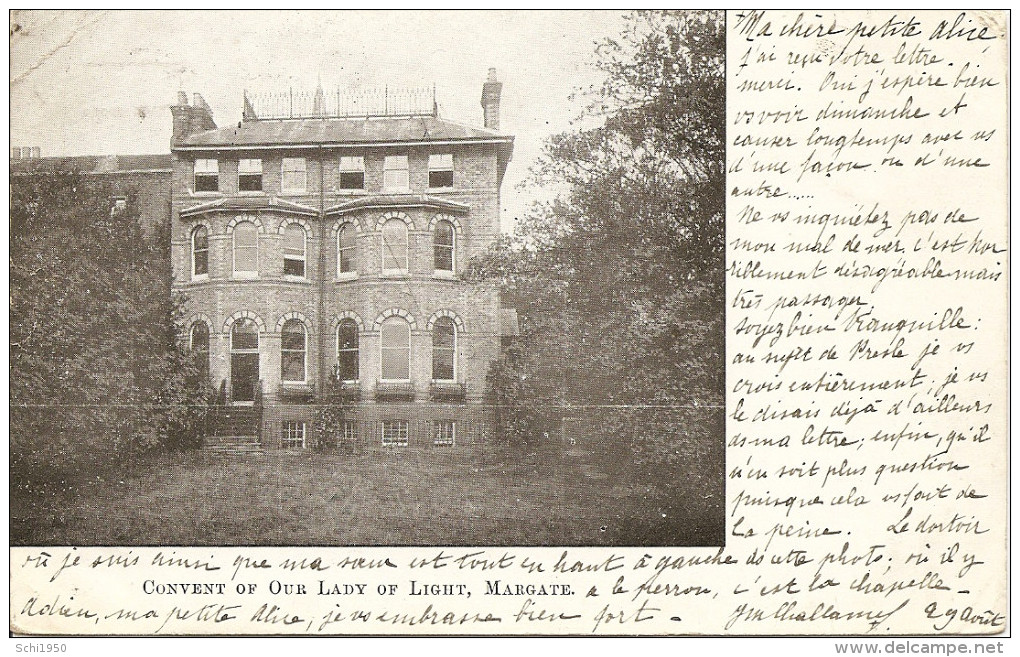 Ma chère petite Alice.
J'ai reçu votre lettre.
merci. Oui j'espère bien
vs voir dimanche et
causer longtemps avec vs
d'une façon ou d'une
autre.....
Ne vs inquiétez pas de
mon mal de mer, c'est hor
riblement désagréable mais
très passager.
Soyez bien tranquille :
au sujet de Presle je vs
crois entièrement ; je vs
le disais déjà d'ailleurs
ds ma lettre ; enfin, qu'il
n'en soit plus question
puisque cela vs fait de
la peine. Le dortoir
où je suis ainsi que ma sœur est tout en haut à gauche ds cette photo ; où il y
CONVENT OF OUR LADY OF LIGHT, MARGATE.
a le perron, c'est la chapelle -
Adieu, ma petite Alice, je vs embrasse bien fort -
29 Août
Schi1950
www.delcampe.net